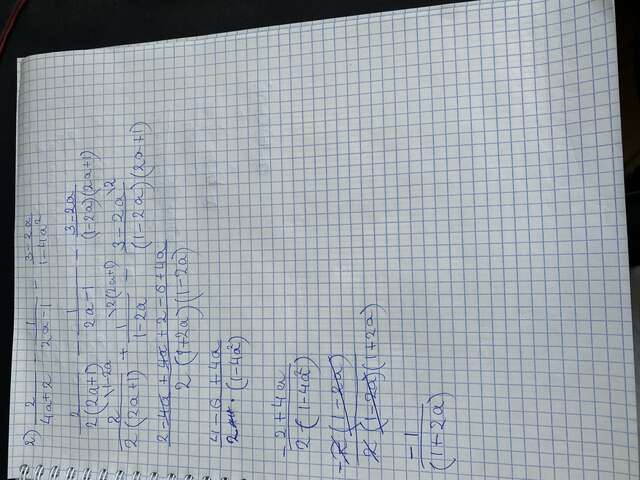 2) 2/(4a+2) - 1/(2a-1) - (3-2a)/(1-4a²)
2/(2(2a+1)) - 1/(2a-1) - (3-2a)/((1-2a)(2a+1))
2\1-2a/(2(2a+1)) + 1\2(2a+1)/(1-2a) - (3-2a)\2/((1-2a)(2a+1))
(2-4a+4a+2-6+4a)/(2(1+2a)(1-2a))
(4-6+4a)/(2(1-4a²))
(-2+4a)/(2(1-4a²))
-2(1-2a)/(2(1-2a)(1+2a))
-1/(1+2a)